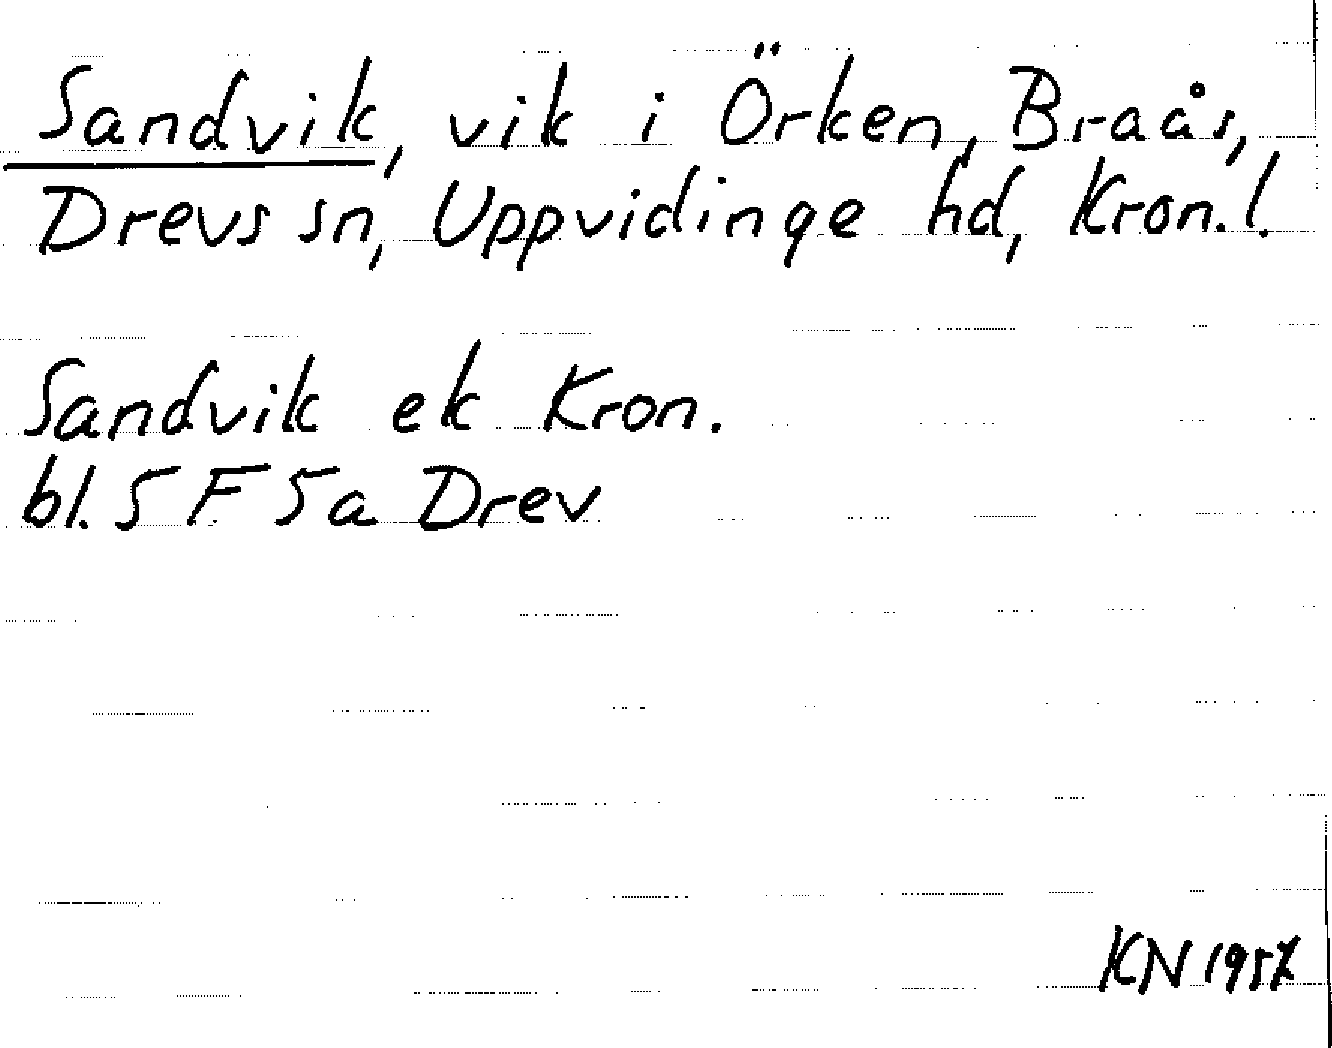 Sandvik, vik i Örken, Braås,
Drevs sn, Uppvidinge hd, Kron.l.
Sandvik ek Kron.
bl. 5 F 5a Drev
KN 1957